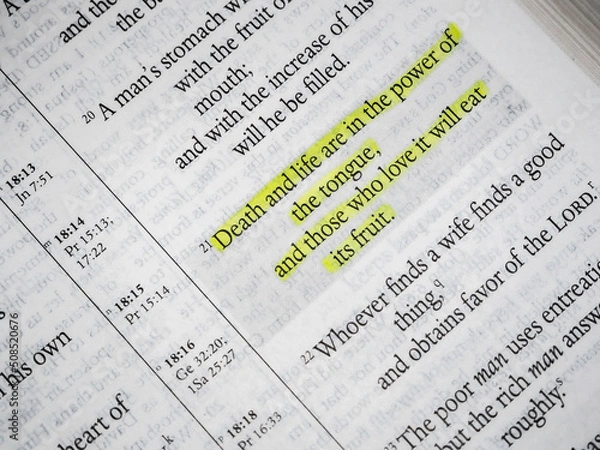 and the
the ba
20 A man's stomach w
with the fruit of
mouth;
and with the increase of his
will he be filled.
21 Death and life are in the power of
the tongue,
and those who love it will eat
its fruit.
22 Whoever finds a wife finds a good
thing,q
and obtains favor of the LORD.r
23 The poor man uses entreatie
but the rich man answe
roughly.s
18:13
Jn 7:51
m 18:14
Pr 15:13;
17:22
n 18:15
Pr 15:14
o 18:16
Ge 32:20;
1Sa 25:27
p 18:18
Pr 16:33
his own
heart of
Adobe Stock | #508520676